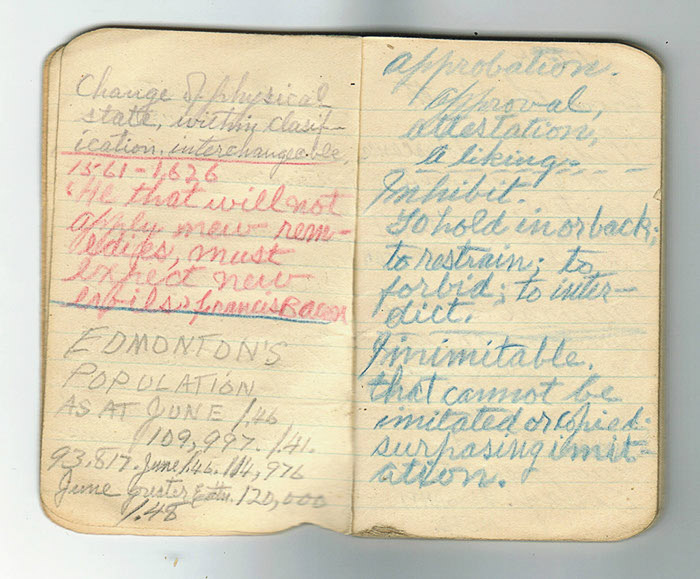 Change of physical
state, within clasif-
ication, interchangeable.
1561-1626
"He that will not
apply new rem-
edies, must
expect new
evils" francis Bacon
EDMONTON'S
POPULATION
AS AT JUNE 1.46
109,997. 1.41.
93,817. June 1.46. 114,976
June greater Edtn. 120,000
1.48
approbation.
approval,
attestation,
a liking.
Inhibit.
To hold in or back;
to restrain; to
forbid; to inter-
dict.
Inimitable.
that cannot be
imitated or copied.
surpasing imit-
ation.